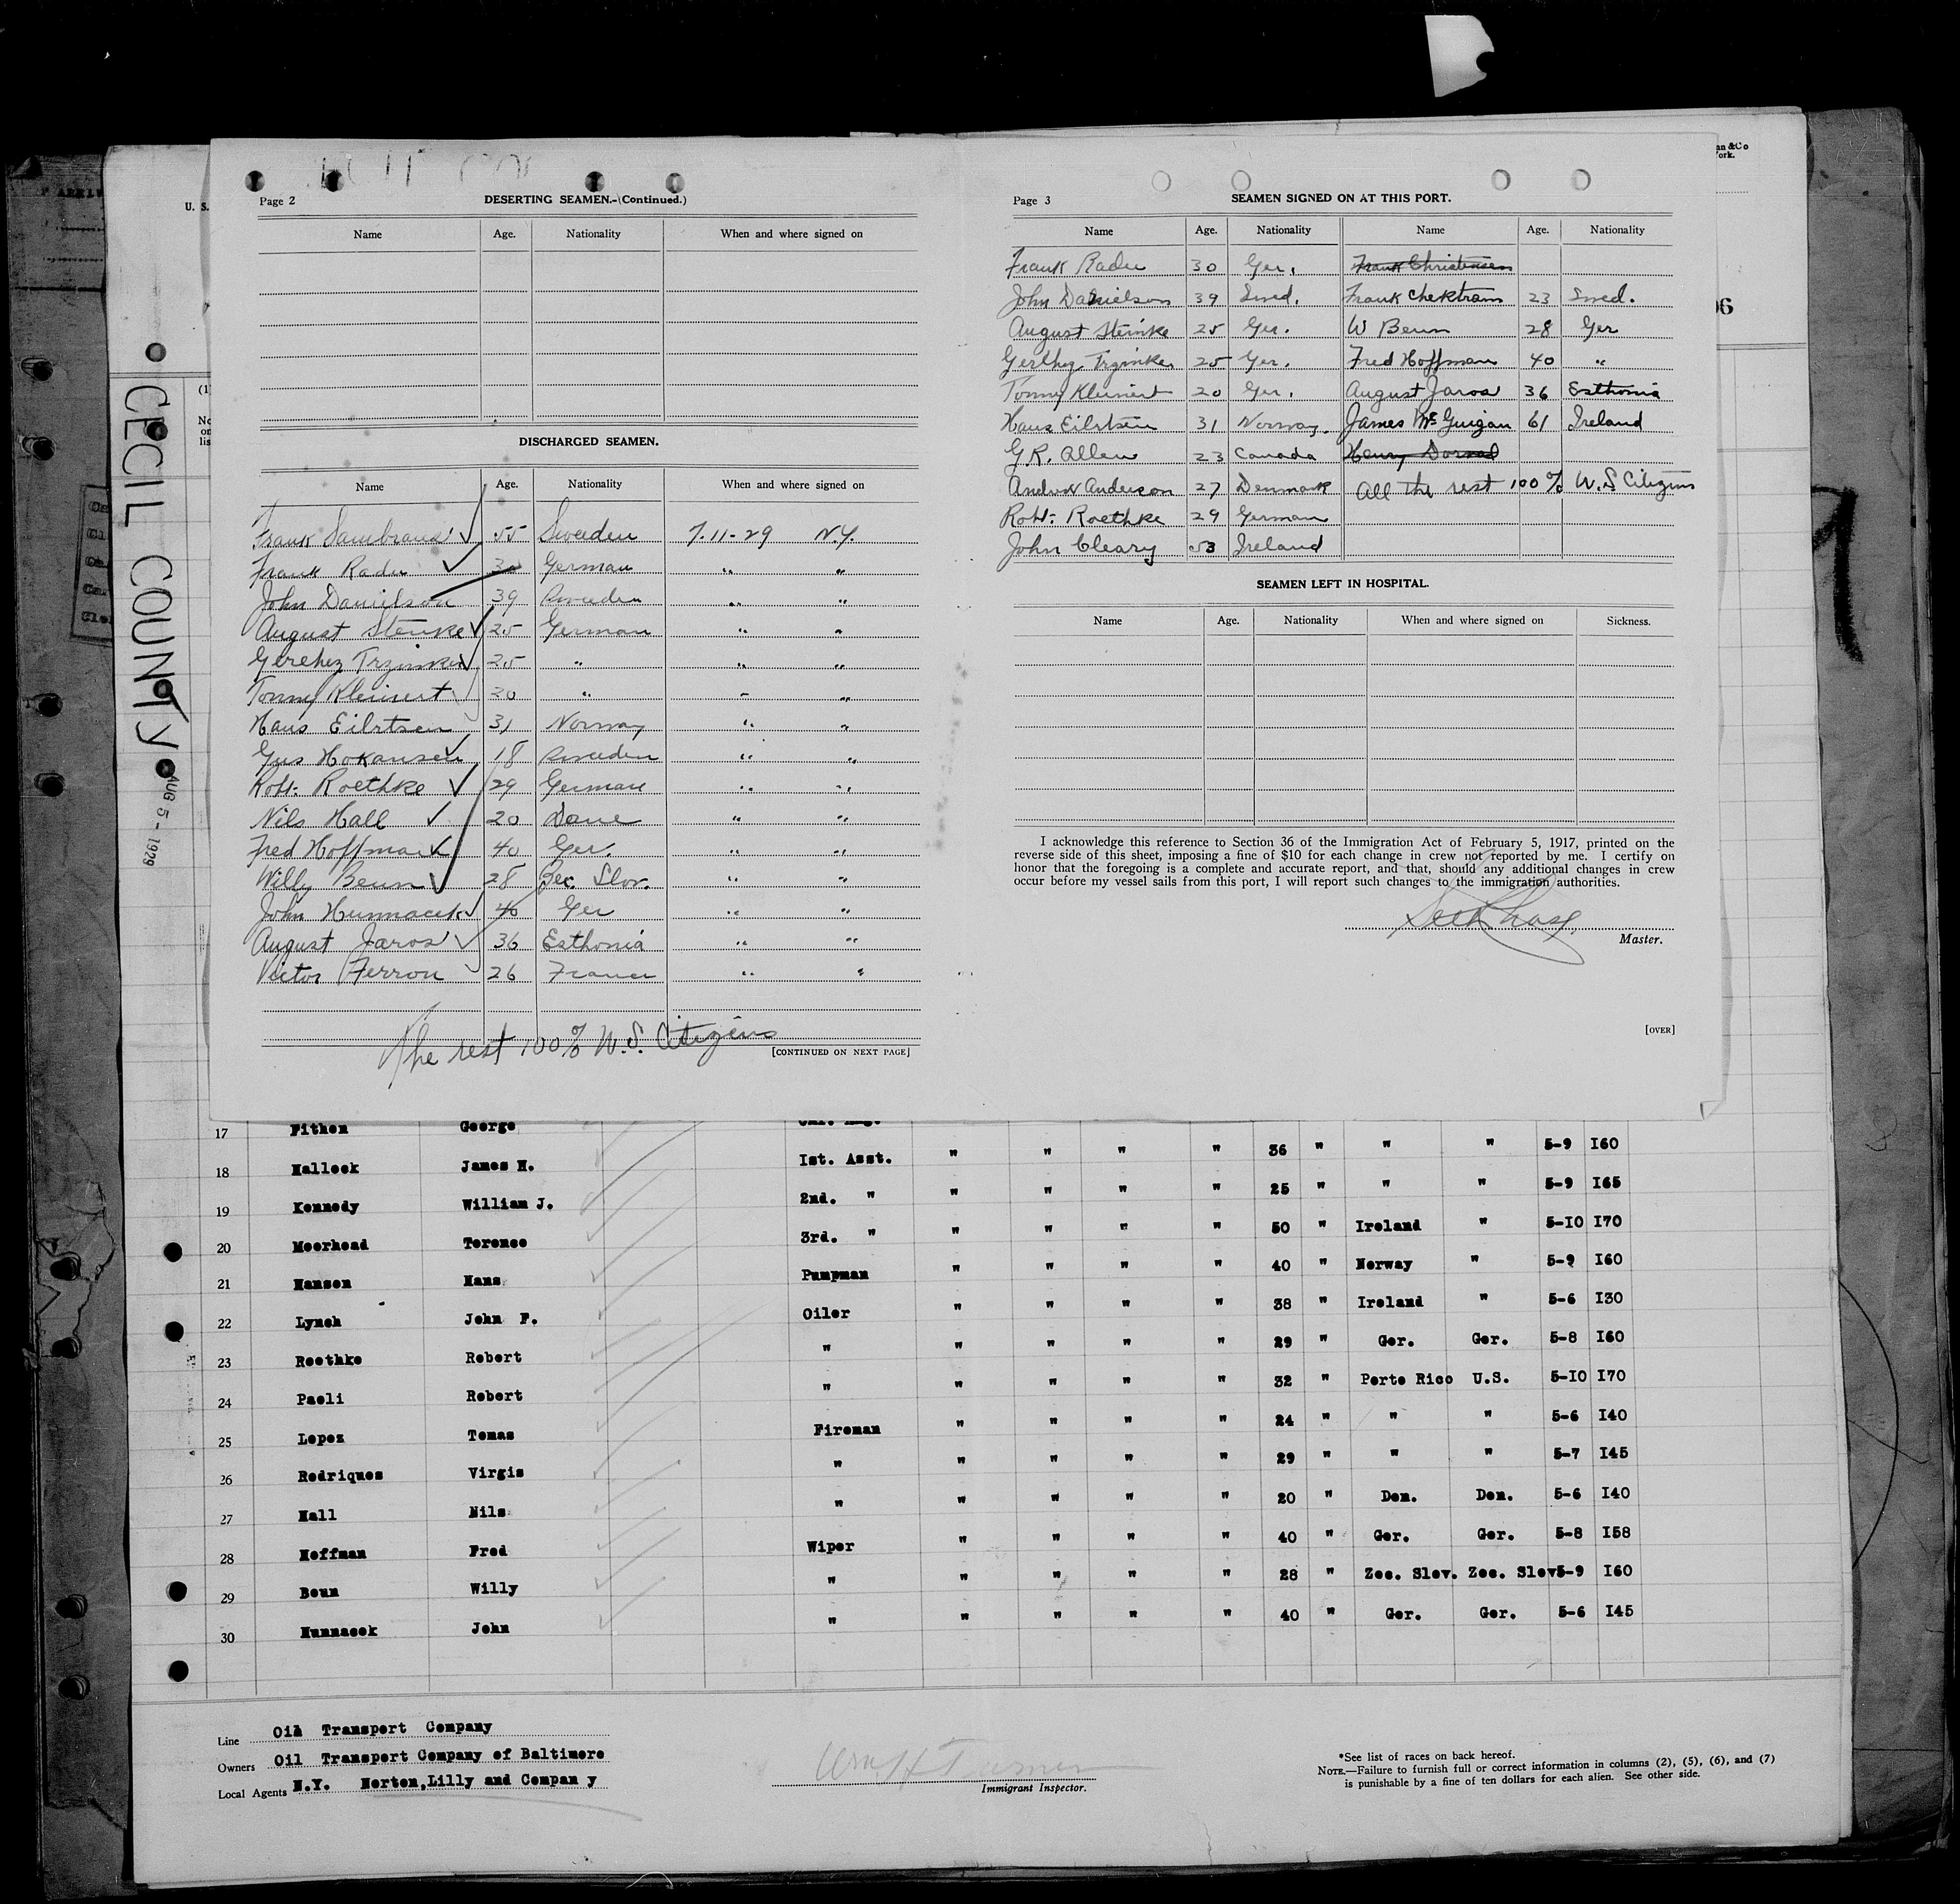 Page 2
DESERTING SEAMEN.-(Continued.)
Name Age. Nationality When and where signed on
DISCHARGED SEAMEN.
Name Age. Nationality When and where signed on
Frank Sambrand 55 Sweden 7-11-29 N.Y.
Frank Radu 30 German " "
John Danielson 39 Sweden " "
August Steinke 25 German " "
Gerchez Trzinker 25 " " "
Tonny Kleinert 20 " " "
Hans Eilrtsen 31 Norway " "
Gus Hokansen 18 Sweden " "
Robt. Roethke 29 German " "
Nils Hall 20 Dane " "
Fred Hoffman 40 Ger. " "
Willy Beun 28 Zec. Slov. " "
John Hunnacek 40 Ger " "
August Jaros 36 Esthonia " "
Victor Ferron 26 France " "
The rest 100% U.S. Citizens
[CONTINUED ON NEXT PAGE]
Page 3
SEAMEN SIGNED ON AT THIS PORT.
Name Age. Nationality Name Age. Nationality
Frank Radu 30 Ger. Frank Christensen
John Danielson 39 Swed. Frank Chektram 23 Swed.
August Steinke 25 Ger. W Beun 28 Ger
Gerthez Trzinker 25 Ger. Fred Hoffman 40 "
Tonny Kleinert 20 Ger. August Jaros 36 Esthonia
Hans Eilrtsen 31 Norway. James McGuigan 61 Ireland
G.R. Allen 23 Canada Henry
Andrew Anderson 27 Denmark All the rest 100% U.S Citizens
Robt. Roethke 29 German
John Cleary 53 Ireland
SEAMEN LEFT IN HOSPITAL.
Name Age. Nationality When and where signed on Sickness.
I acknowledge this reference to Section 36 of the Immigration Act of February 5, 1917, printed on the
reverse side of this sheet, imposing a fine of $10 for each change in crew not reported by me. I certify on
honor that the foregoing is a complete and accurate report, and that, should any additional changes in crew
occur before my vessel sails from this port, I will report such changes to the immigration authorities.
Master.
[OVER]
CECIL COUNTY
AUG 5 - 1929
U. S.
17 Pithon George
18 Halleck James H. Ist. Asst. " " " " 36 " " " 5-9 I60
19 Kennedy William J. 2nd. " " " " " 25 " " " 5-9 I65
20 Moorhead Terence 3rd. " " " " " 50 " Ireland " 5-I0 I70
21 Hansen Hans Pumpman " " " " 40 " Norway " 5-9 I60
22 Lynch John F. Oiler " " " " 38 " Ireland " 5-6 I30
23 Roethke Robert " " " " " 29 " Ger. Ger. 5-8 I60
24 Paoli Robert " " " " " 32 " Porto Rico U.S. 5-I0 I70
25 Lopez Tomas Fireman " " " " 24 " " " 5-6 I40
26 Rodriques Virgis " " " " " 29 " " " 5-7 I45
27 Hall Nils " " " " " 20 " Den. Den. 5-6 I40
28 Hoffman Fred Wiper " " " " 40 " Ger. Ger. 5-8 I58
29 Boun Willy " " " " " 28 " Zec. Slov. Zec. Slov 5-9 I60
30 Hunnacek John " " " " " 40 " Ger. Ger. 5-6 I45
Line Oil Transport Company
Owners Oil Transport Company of Baltimore
Local Agents N.Y. Norton,Lilly and Compan y
Wm H Turner
Immigrant Inspector.
*See list of races on back hereof.
NOTE.—Failure to furnish full or correct information in columns (2), (5), (6), and (7)
is punishable by a fine of ten dollars for each alien. See other side.